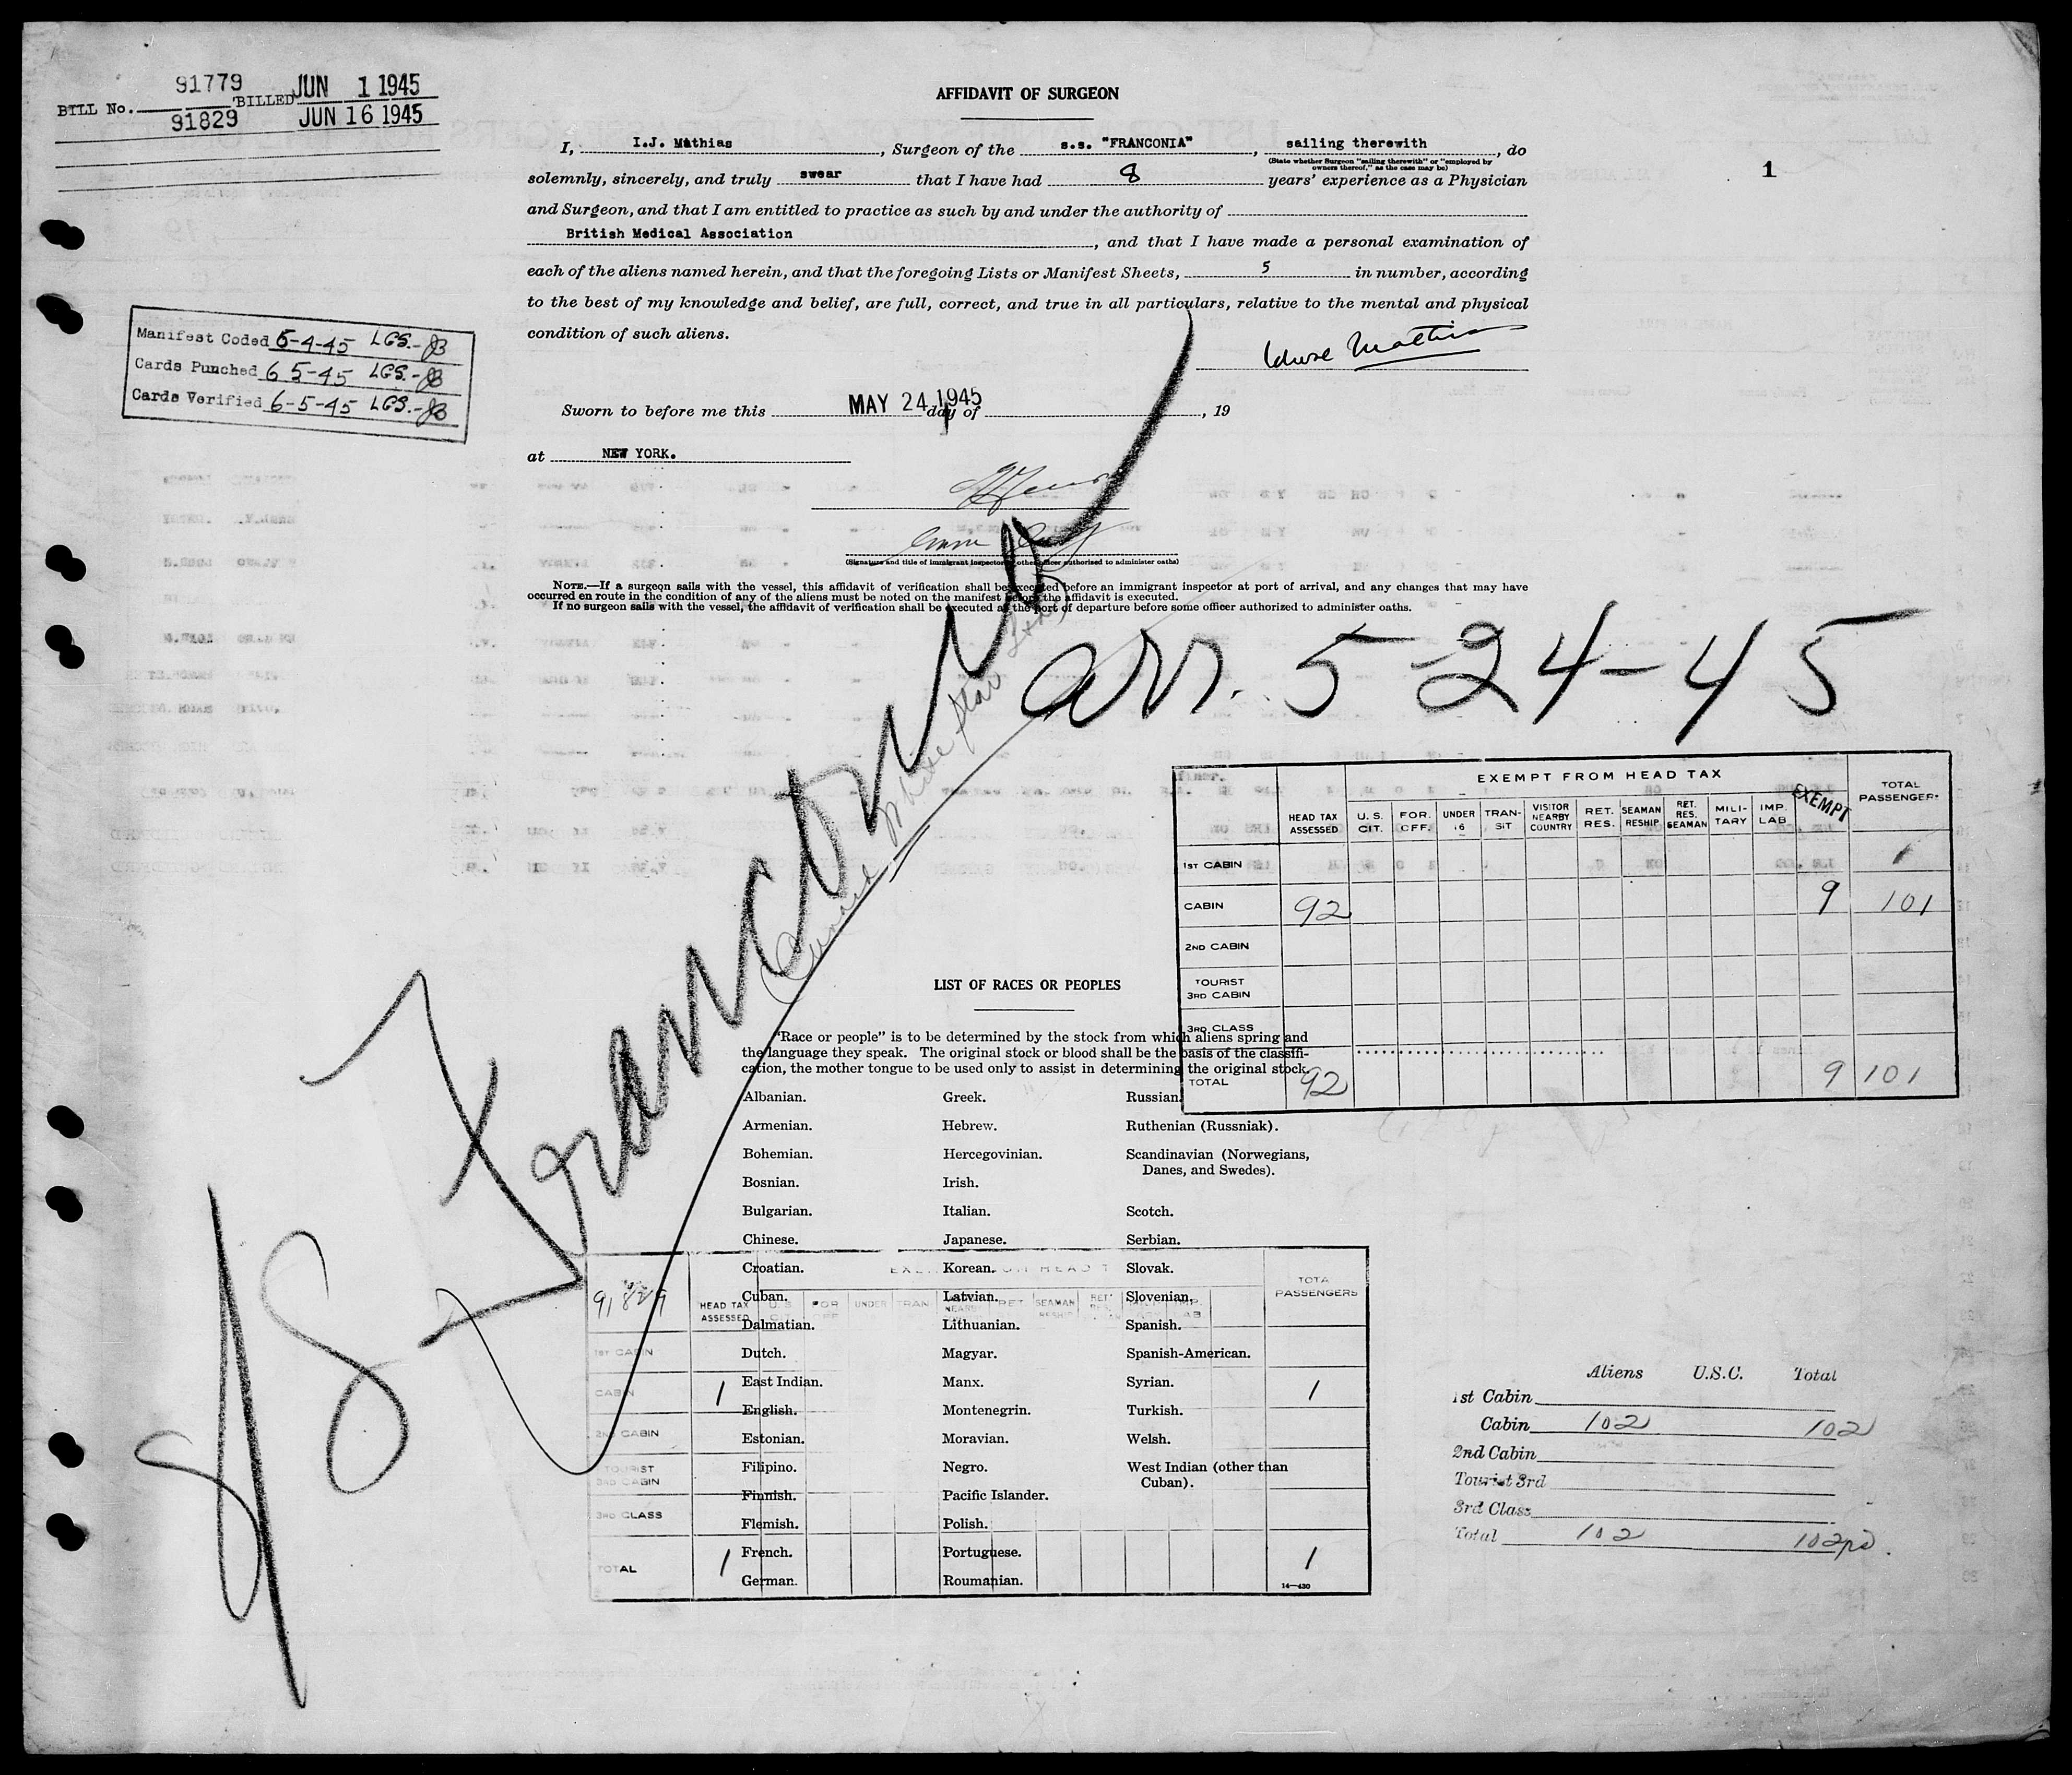 BILL No. 91779 BILLED JUN 1 1945
91829 JUN 16 1945
AFFIDAVIT OF SURGEON
I, I.J. Mathias, Surgeon of the s.s. "FRANCONIA", sailing therewith, do
(State whether Surgeon "sailing therewith" or "employed by
owners thereof," as the case may be)
solemnly, sincerely, and truly swear that I have had 8 years' experience as a Physician
and Surgeon, and that I am entitled to practice as such by and under the authority of
British Medical Association, and that I have made a personal examination of
each of the aliens named herein, and that the foregoing Lists or Manifest Sheets, 5 in number, according
to the best of my knowledge and belief, are full, correct, and true in all particulars, relative to the mental and physical
condition of such aliens.
1
Manifest Coded 5-4-45 LGS.-JB
Cards Punched 6 5-45 LGS.-JB
Cards Verified 6-5-45 LGS.-JB
Mathias
Sworn to before me this MAY 24 1945 day of , 19
at NEW YORK.
(Signature and title of immigrant inspector or other officer authorized to administer oaths)
NOTE.—If a surgeon sails with the vessel, this affidavit of verification shall be executed before an immigrant inspector at port of arrival, and any changes that may have
occurred en route in the condition of any of the aliens must be noted on the manifest before the affidavit is executed.
If no surgeon sails with the vessel, the affidavit of verification shall be executed at the port of departure before some officer authorized to administer oaths.
S/S Franconia
(Cunard White Star Line)
arr. 5-24-45
EXEMPT FROM HEAD TAX
HEAD TAX ASSESSED U.S. CIT. FOR. OFF. UNDER 16 TRAN-SIT VISITOR NEARBY COUNTRY RET. RES. SEAMAN RESHIP RET. RES. SEAMAN MILI-TARY IMP. LAB EXEMPT TOTAL PASSENGERS
1ST CABIN
CABIN 92 9 101
2ND CABIN
TOURIST
3RD CABIN
3RD CLASS
TOTAL 92 9 101
LIST OF RACES OR PEOPLES
"Race or people" is to be determined by the stock from which aliens spring and
the language they speak. The original stock or blood shall be the basis of the classifi-
cation, the mother tongue to be used only to assist in determining the original stock.
Albanian. Greek. Russian.
Armenian. Hebrew. Ruthenian (Russniak).
Bohemian. Hercegovinian. Scandinavian (Norwegians,
Danes, and Swedes).
Bosnian. Irish.
Bulgarian. Italian. Scotch.
Chinese. Japanese. Serbian.
Croatian. Korean. Slovak.
Cuban. Latvian. Slovenian.
Dalmatian. Lithuanian. Spanish.
Dutch. Magyar. Spanish-American.
East Indian. Manx. Syrian.
English. Montenegrin. Turkish.
Estonian. Moravian. Welsh.
Filipino. Negro. West Indian (other than
Cuban).
Finnish. Pacific Islander.
Flemish. Polish.
French. Portuguese.
German. Roumanian.
14—430
91829
HEAD TAX ASSESSED U.S. FOR OFF UNDER TRAN NEARBY RET SEAMAN RESHIP RET. RES. IMP. LAB TOTA PASSENGERS
1ST CABIN
CABIN 1 1
2ND CABIN
TOURIST
3RD CABIN
3RD CLASS
TOTAL 1 1
Aliens U.S.C. Total
1st Cabin
Cabin 102 102
2nd Cabin
Tourist 3rd
3rd Class
Total 102 102